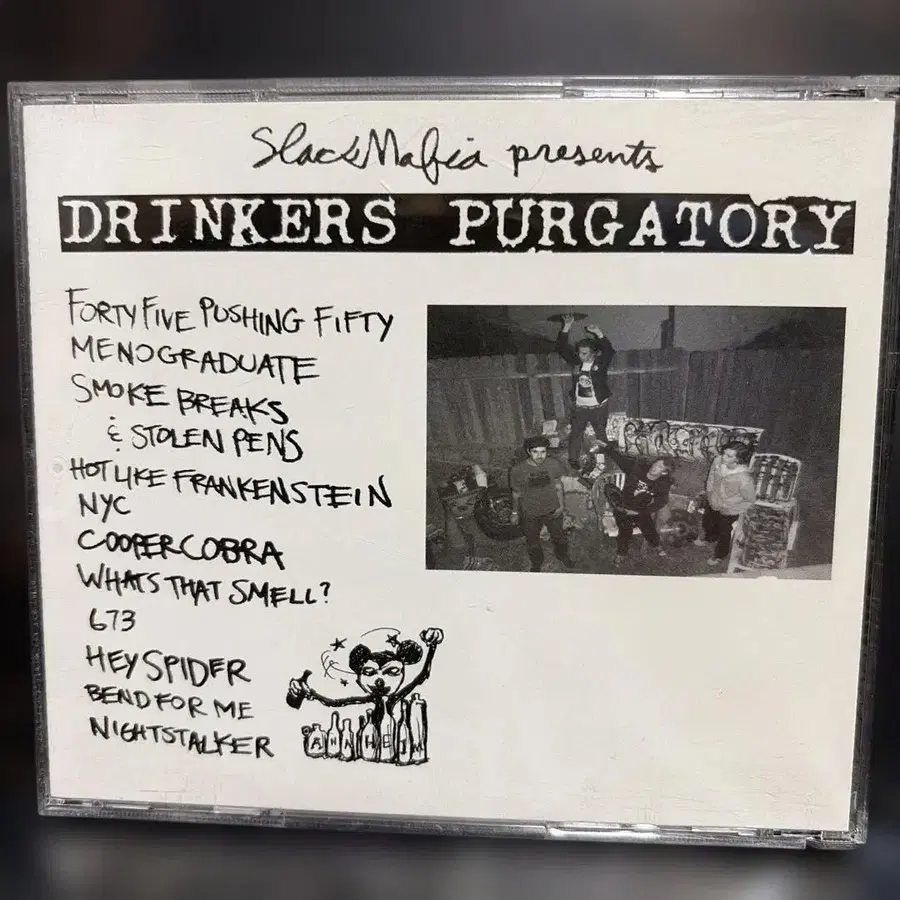 SlackMafia presents
DRINKERS PURGATORY
FORTY FIVE PUSHING FIFTY
MENOGRADUATE
SMOKE BREAKS
& STOLEN PENS
HOT LIKE FRANKENSTEIN
NYC
COOPER COBRA
WHATS THAT SMELL?
673
HEY SPIDER
BEND FOR ME
NIGHTSTALKER
ANAHEIM